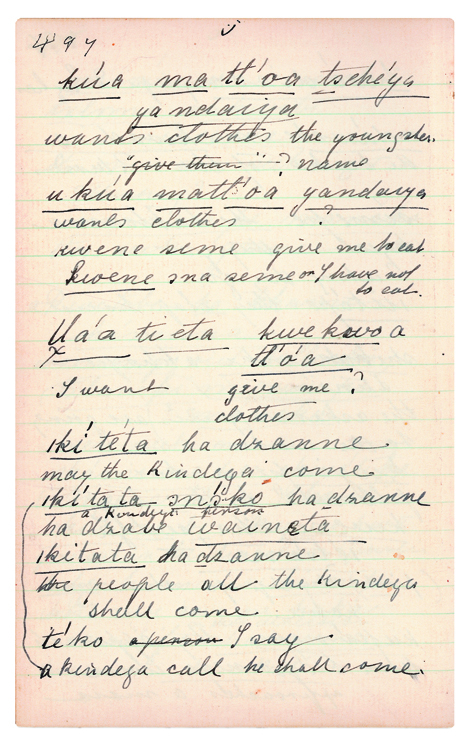 497
kúa ma tl'oa tschéya
yandaiya
wants clothes the youngster
"give them" ? name
ukúa matl'óa yandaiya
wants clothes ?
kwene seme give me to eat
kwene sna seme or I have not
to eat.
Uáa tieta kwekwoa
x tl'óa
I want give me ?
clothes
ikí téta ha dzanne
may the Kindega come
ikítata snśko ha dzanne
a Kindega person
ha dzabe waineta
ikitata hadzanne
the people all the Kindega
shall come
téko a person I say
a Kindega call he shall come.